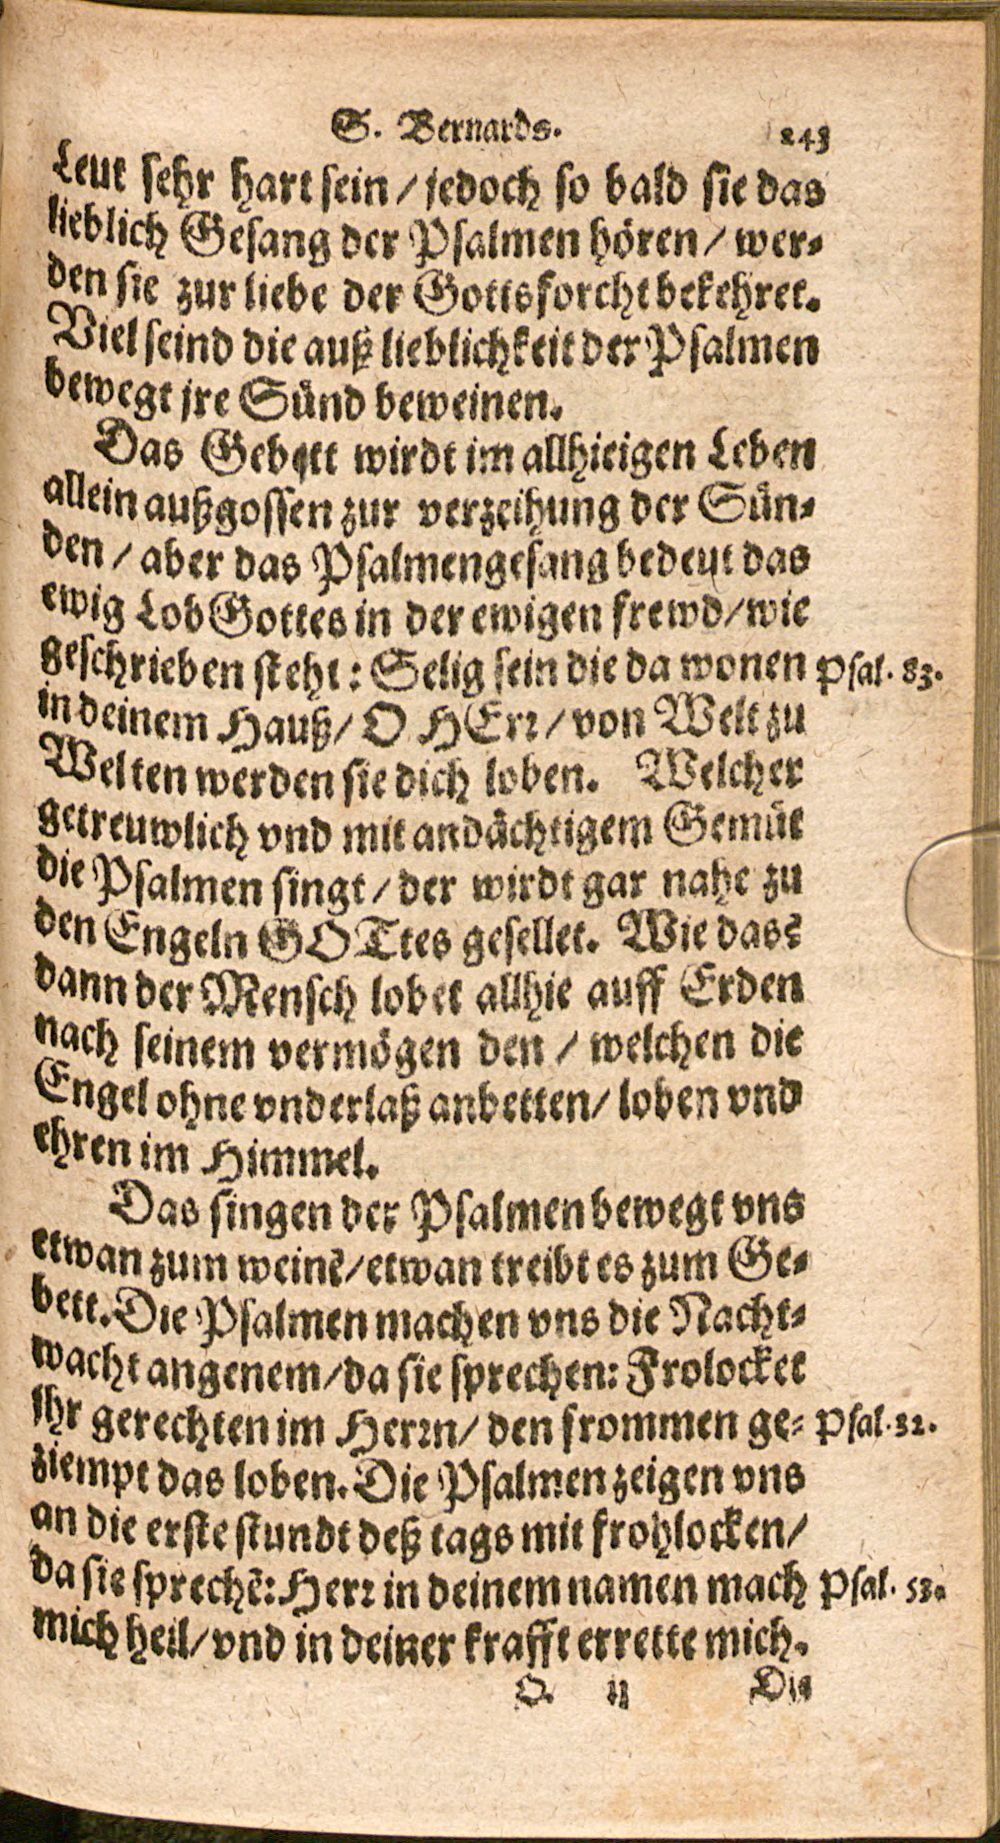 S. Bernards. 243
Leut sehr hart sein / jedoch so bald sie das
lieblich Gesang der Psalmen hören / wer-
den sie zur liebe der Gottsforcht bekehret.
Viel seind die auß lieblichkeit der Psalmen
bewegt jre Sünd beweinen.
Das Gebett wirdt im allhieigen Leben
allein außgossen zur verzeihung der Sün-
den / aber das Psalmengesang bedeut das
ewig Lob Gottes in der ewigen frewd / wie
geschrieben steht: Selig sein die da wonen Psal. 83.
in deinem Hauß / O HErr / von Welt zu
Welten werden sie dich loben. Welcher
getreuwlich vnd mit andächtigem Gemüt
die Psalmen singt / der wirdt gar nahe zu
den Engeln GOTtes gesellet. Wie das?
dann der Mensch lobet allhie auff Erden
nach seinem vermögen den / welchen die
Engel ohne vnderlaß anbetten / loben vnd
ehren im Himmel.
Das singen der Psalmen bewegt vns
etwan zum weinē / etwan treibt es zum Ge-
bett. Die Psalmen machen vns die Nacht-
wacht angenem / da sie sprechen: Frolocket
ihr gerechten im Herrn / den frommen ge- Psal. 32.
ziempt das loben. Die Psalmen zeigen vns
an die erste stundt deß tags mit frohlocken /
da sie sprechē: Herr in deinem namen mach Psal. 53.
mich heil / vnd in deiner krafft errette mich.
O. ij Die